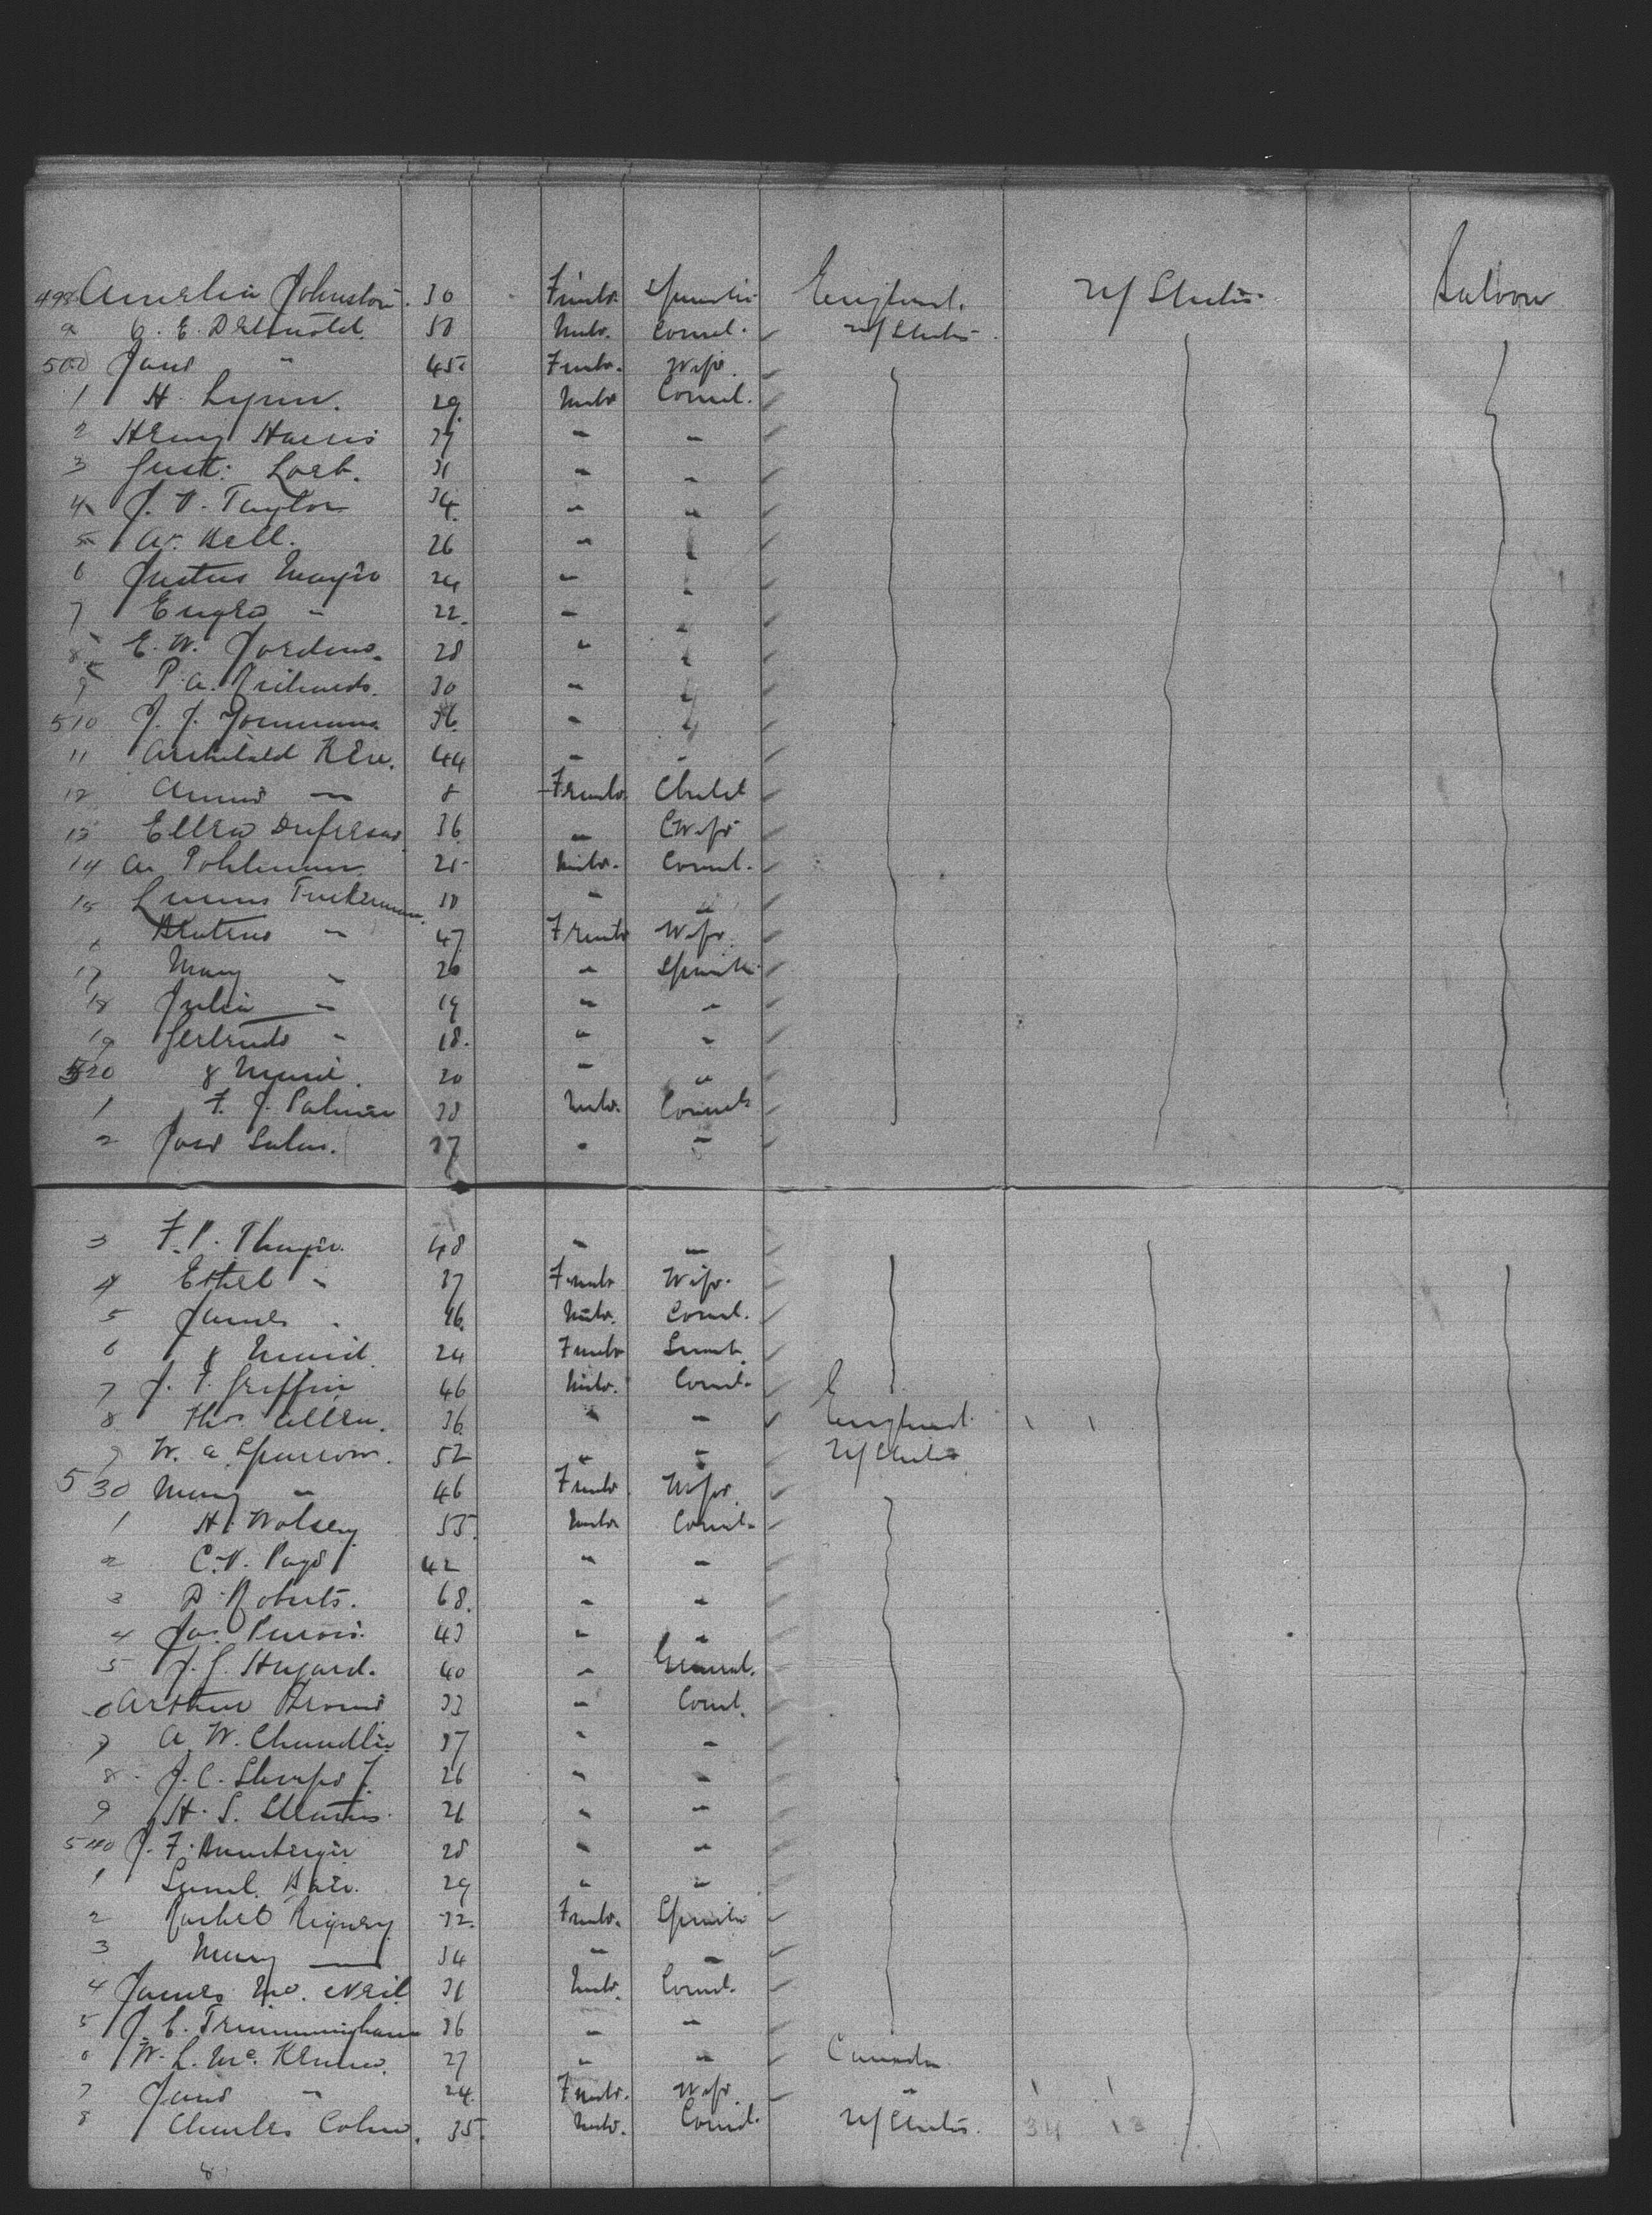 498 Amelia Johnston. 30 Female Spinster England. U/States Saloon
9 C. E. Detmold. 50 Male. Coml. U/States
500 Jane " 45. Female. Wife.
1 H. Lynn. 29. Male Coml.
2 Henry Harris 39 " "
3 Gust. Loeb. 31 " "
4 J. V. Taylor 34. " "
5 A. Bell. 26 " "
6 Justus Mayer 24 " "
7 " 22. " "
8 E. W. Jordens. 28 " "
9 P. A. Richards. 30 " "
510 J. J. 36. " "
11 Archibald Kerr. 44 " "
12 Annie " 8 Female Child
13 Ellen 36. " Wife
14 A. Pohlman. 25 Male. Coml.
15 Tuckerman. 50 " "
6 " 47. Female Wife.
17 Mary " 20 " Spinster
18 Julia " 19 " "
19 Gertrude " 18. " "
520 & Maid. 20 " "
1 F. J. Palmer 38 Male. Coml.
2 Jose 37 " "
3 F. P. Thayer. 48 " "
4 Ethel " 37 Female Wife.
5 James " 46. Male. Coml.
6 & Maid. 24 Female Servt.
7 J. F. Griffin 46 Male. Coml.
8 Thos. Allen. 36. " " England
9 W. A. Sparrow. 52 " " U/States
530 Mary " 46 Female Wife.
1 H. Wolsey 55. Male Coml.
2 C. V. Page 42 " "
3 D. Roberts. 68. " "
4 Jas. Purvis. 43 " "
5 J. G. Hugard. 40 " General.
6 Arthur Brown 33 " Coml.
7 A. W. Chandler 37 " "
8 J. C. 26 " "
9 H. S. Stearns. 26 " "
540 J. F. 28 " "
1 Saml. 29 " "
2 Rachel Rigney 32. Female. Spinster
3 Mary " 34 " "
4 James Mc. Neil 31 Male. Coml.
5 J. C. Trimmingham 36 " "
6 W. L. Mc. 27 " " Canada
7 Jane " 24. Female. Wife. "
8 Charles Cohn. 35. Male. Coml. U/States. 34 13
8